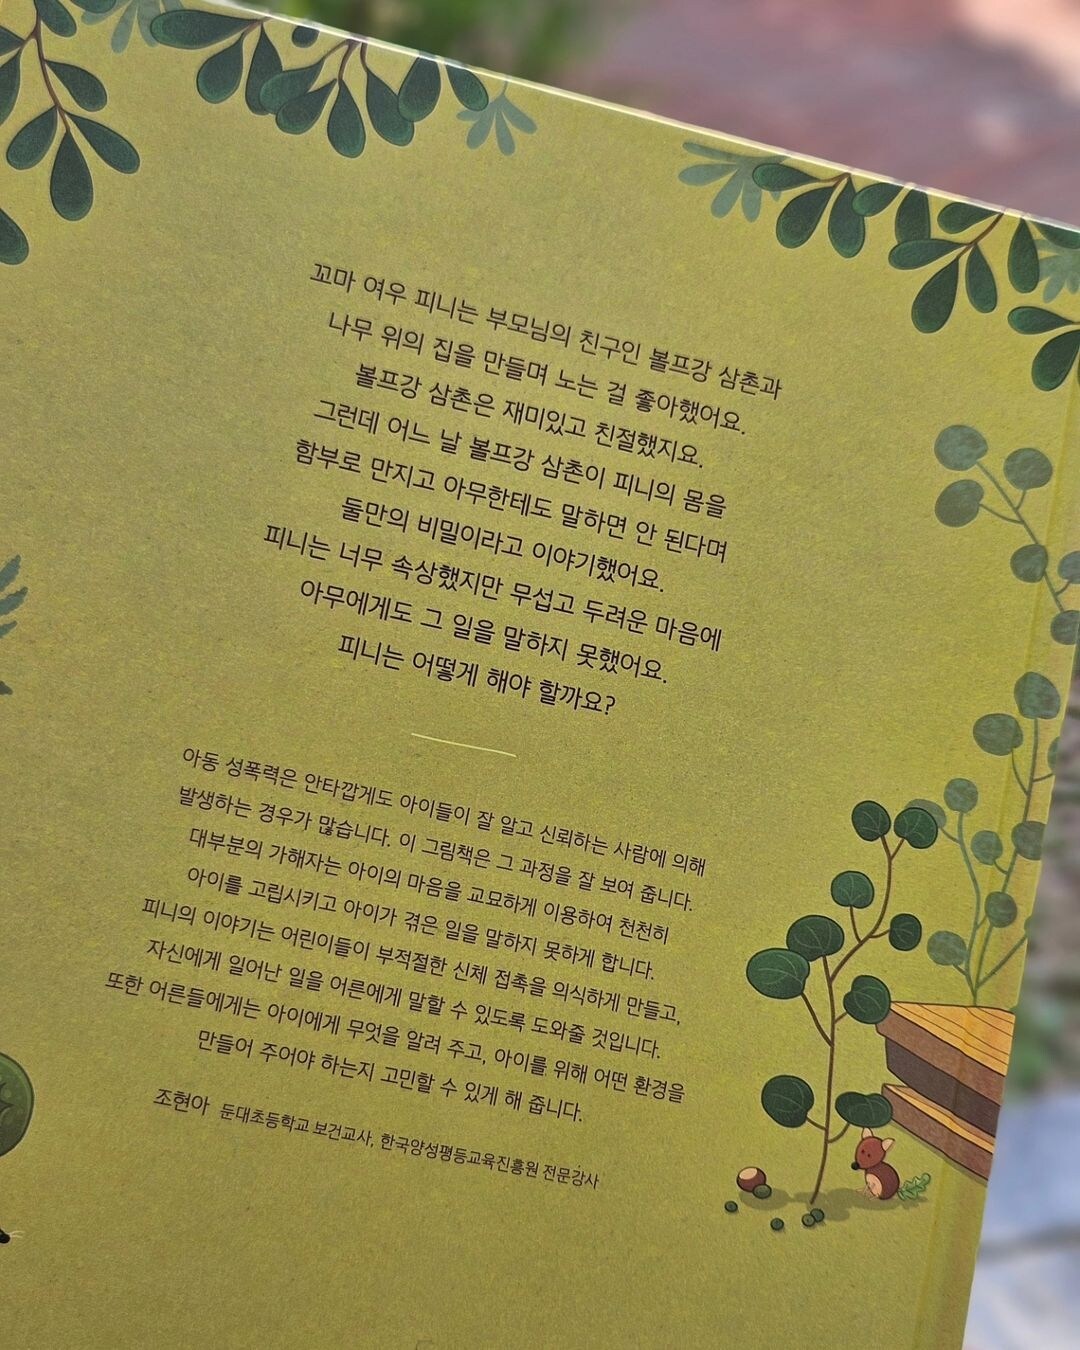 꼬마 여우 피니는 부모님의 친구인 볼프강 삼촌과
나무 위의 집을 만들며 노는 걸 좋아했어요.
볼프강 삼촌은 재미있고 친절했지요.
그런데 어느 날 볼프강 삼촌이 피니의 몸을
함부로 만지고 아무한테도 말하면 안 된다며
둘만의 비밀이라고 이야기했어요.
피니는 너무 속상했지만 무섭고 두려운 마음에
아무에게도 그 일을 말하지 못했어요.
피니는 어떻게 해야 할까요?
아동 성폭력은 안타깝게도 아이들이 잘 알고 신뢰하는 사람에 의해
발생하는 경우가 많습니다. 이 그림책은 그 과정을 잘 보여 줍니다.
대부분의 가해자는 아이의 마음을 교묘하게 이용하여 천천히
아이를 고립시키고 아이가 겪은 일을 말하지 못하게 합니다.
피니의 이야기는 어린이들이 부적절한 신체 접촉을 의식하게 만들고,
자신에게 일어난 일을 어른에게 말할 수 있도록 도와줄 것입니다.
또한 어른들에게는 아이에게 무엇을 알려 주고, 아이를 위해 어떤 환경을
만들어 주어야 하는지 고민할 수 있게 해 줍니다.
조현아 둔대초등학교 보건교사, 한국양성평등교육진흥원 전문강사